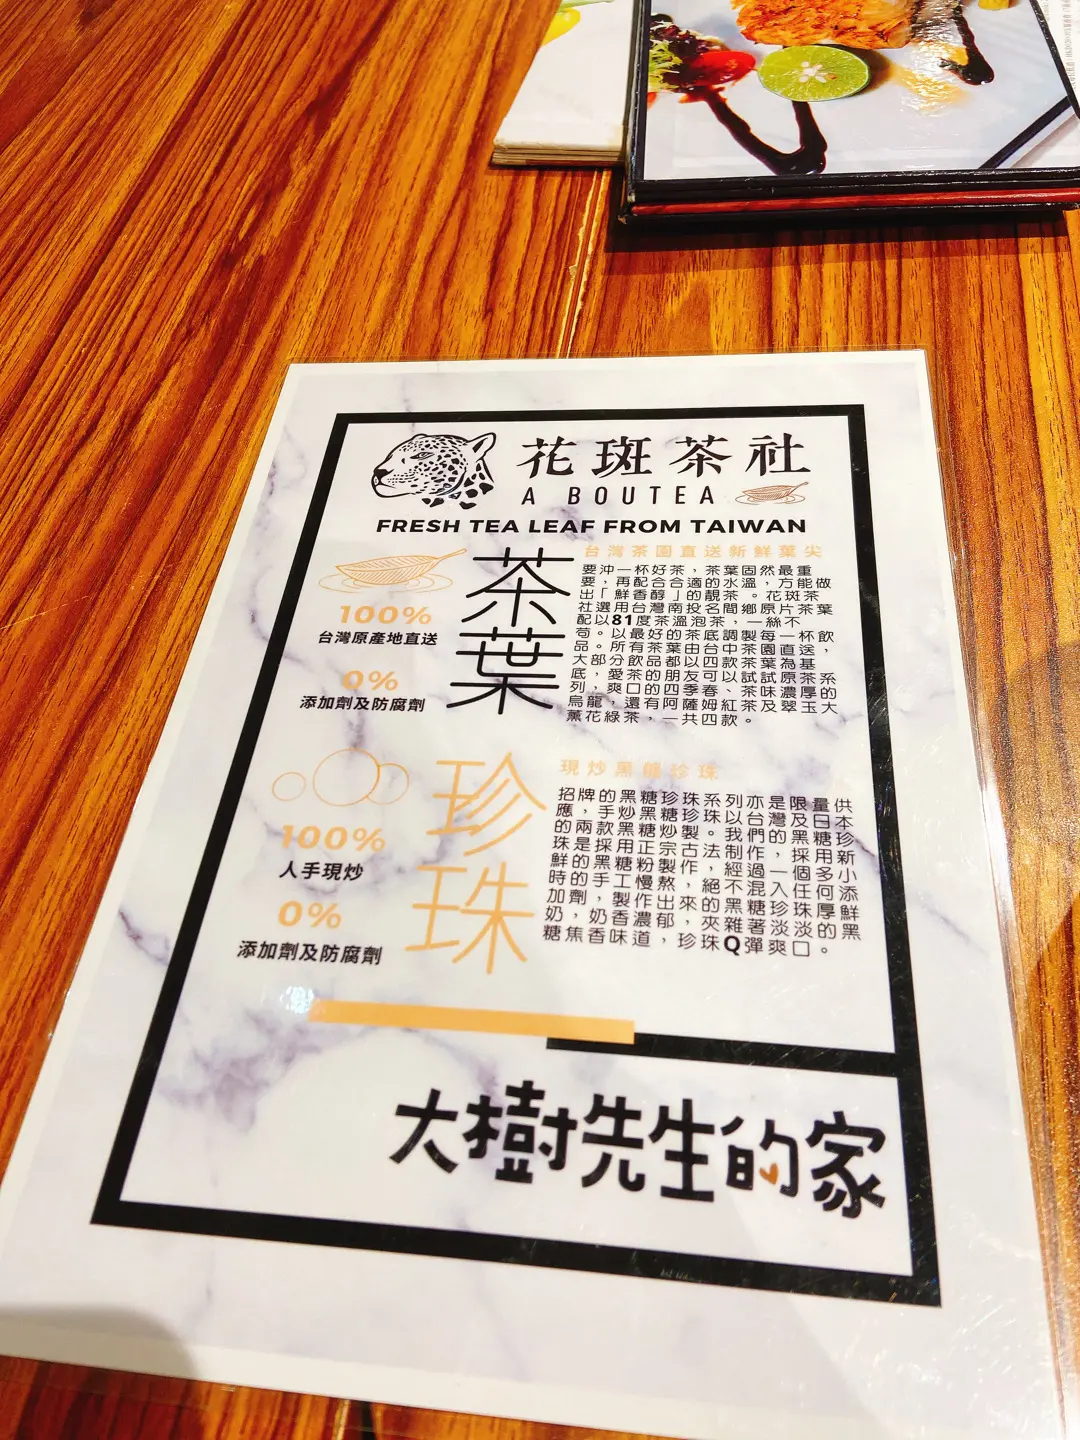 花斑茶社
A BOUTEA
FRESH TEA LEAF FROM TAIWAN
茶葉
100%
台灣原產地直送
0%
添加劑及防腐劑
台灣茶園直送新鮮葉尖
要沖一杯好茶，茶葉固然最重
要，再配合合適的水溫，方能做
出「鮮香醇」的靚茶。花斑茶
社選用台灣南投名間鄉原片茶葉
配以81度茶溫泡茶，一絲不
苟。以最好的茶底調製每一杯飲
品。所有茶葉由台中茶園直送，
大部分飲品都以四款茶葉為基
底，愛茶的朋友可以試試原茶系
列，爽口的四季春、茶味濃厚的
烏龍，還有阿薩姆紅茶及翠玉大
薰花綠茶，一共四款。
珍珠
100%
人手現炒
0%
添加劑及防腐劑
現炒黑糖珍珠
招牌的黑糖珍珠系列亦是限量供
應，手炒黑糖珍珠以台灣及日本
的兩款黑糖炒製。我們的黑糖珍
珠是採用正宗古法制作，採用新
鮮的黑糖粉製作，經過一個多小
時的手工慢熬，絕不混入任何添
加劑，製作出來的黑糖珍珠厚鮮
奶，奶香濃郁，夾雜著淡淡的黑
糖焦香味道，珍珠Q彈爽口。
大樹先生的家